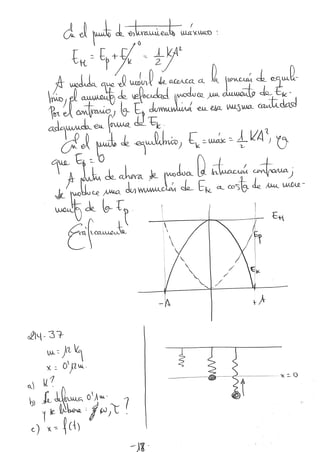 En el punto de estiramiento máximo:
E_M = E_p + E_k^0 = 1/2 KA²
A medida que el móvil se acerca a la posición de equili-
brio, el aumento de velocidad produce un aumento de E_k.
Por el contrario, la E_p disminuirá en esa misma cantidad
adquirida en forma de E_k.
En el punto de equilibrio, E_k = máx = 1/2 KA², ya
que E_p = 0
A partir de ahora se produce la situación contraria;
se produce una disminución de E_k a costa de un incre-
mento de la E_p.
Gráficamente
E_M
E_p
E_k
-A
+A
214-37
m = 12 kg
x = 0'12 m.
a) K?
b) Se deforma 0'1 m.
y se libera: ¿ω, T?
c) x = f(t)
x = 0
-18-